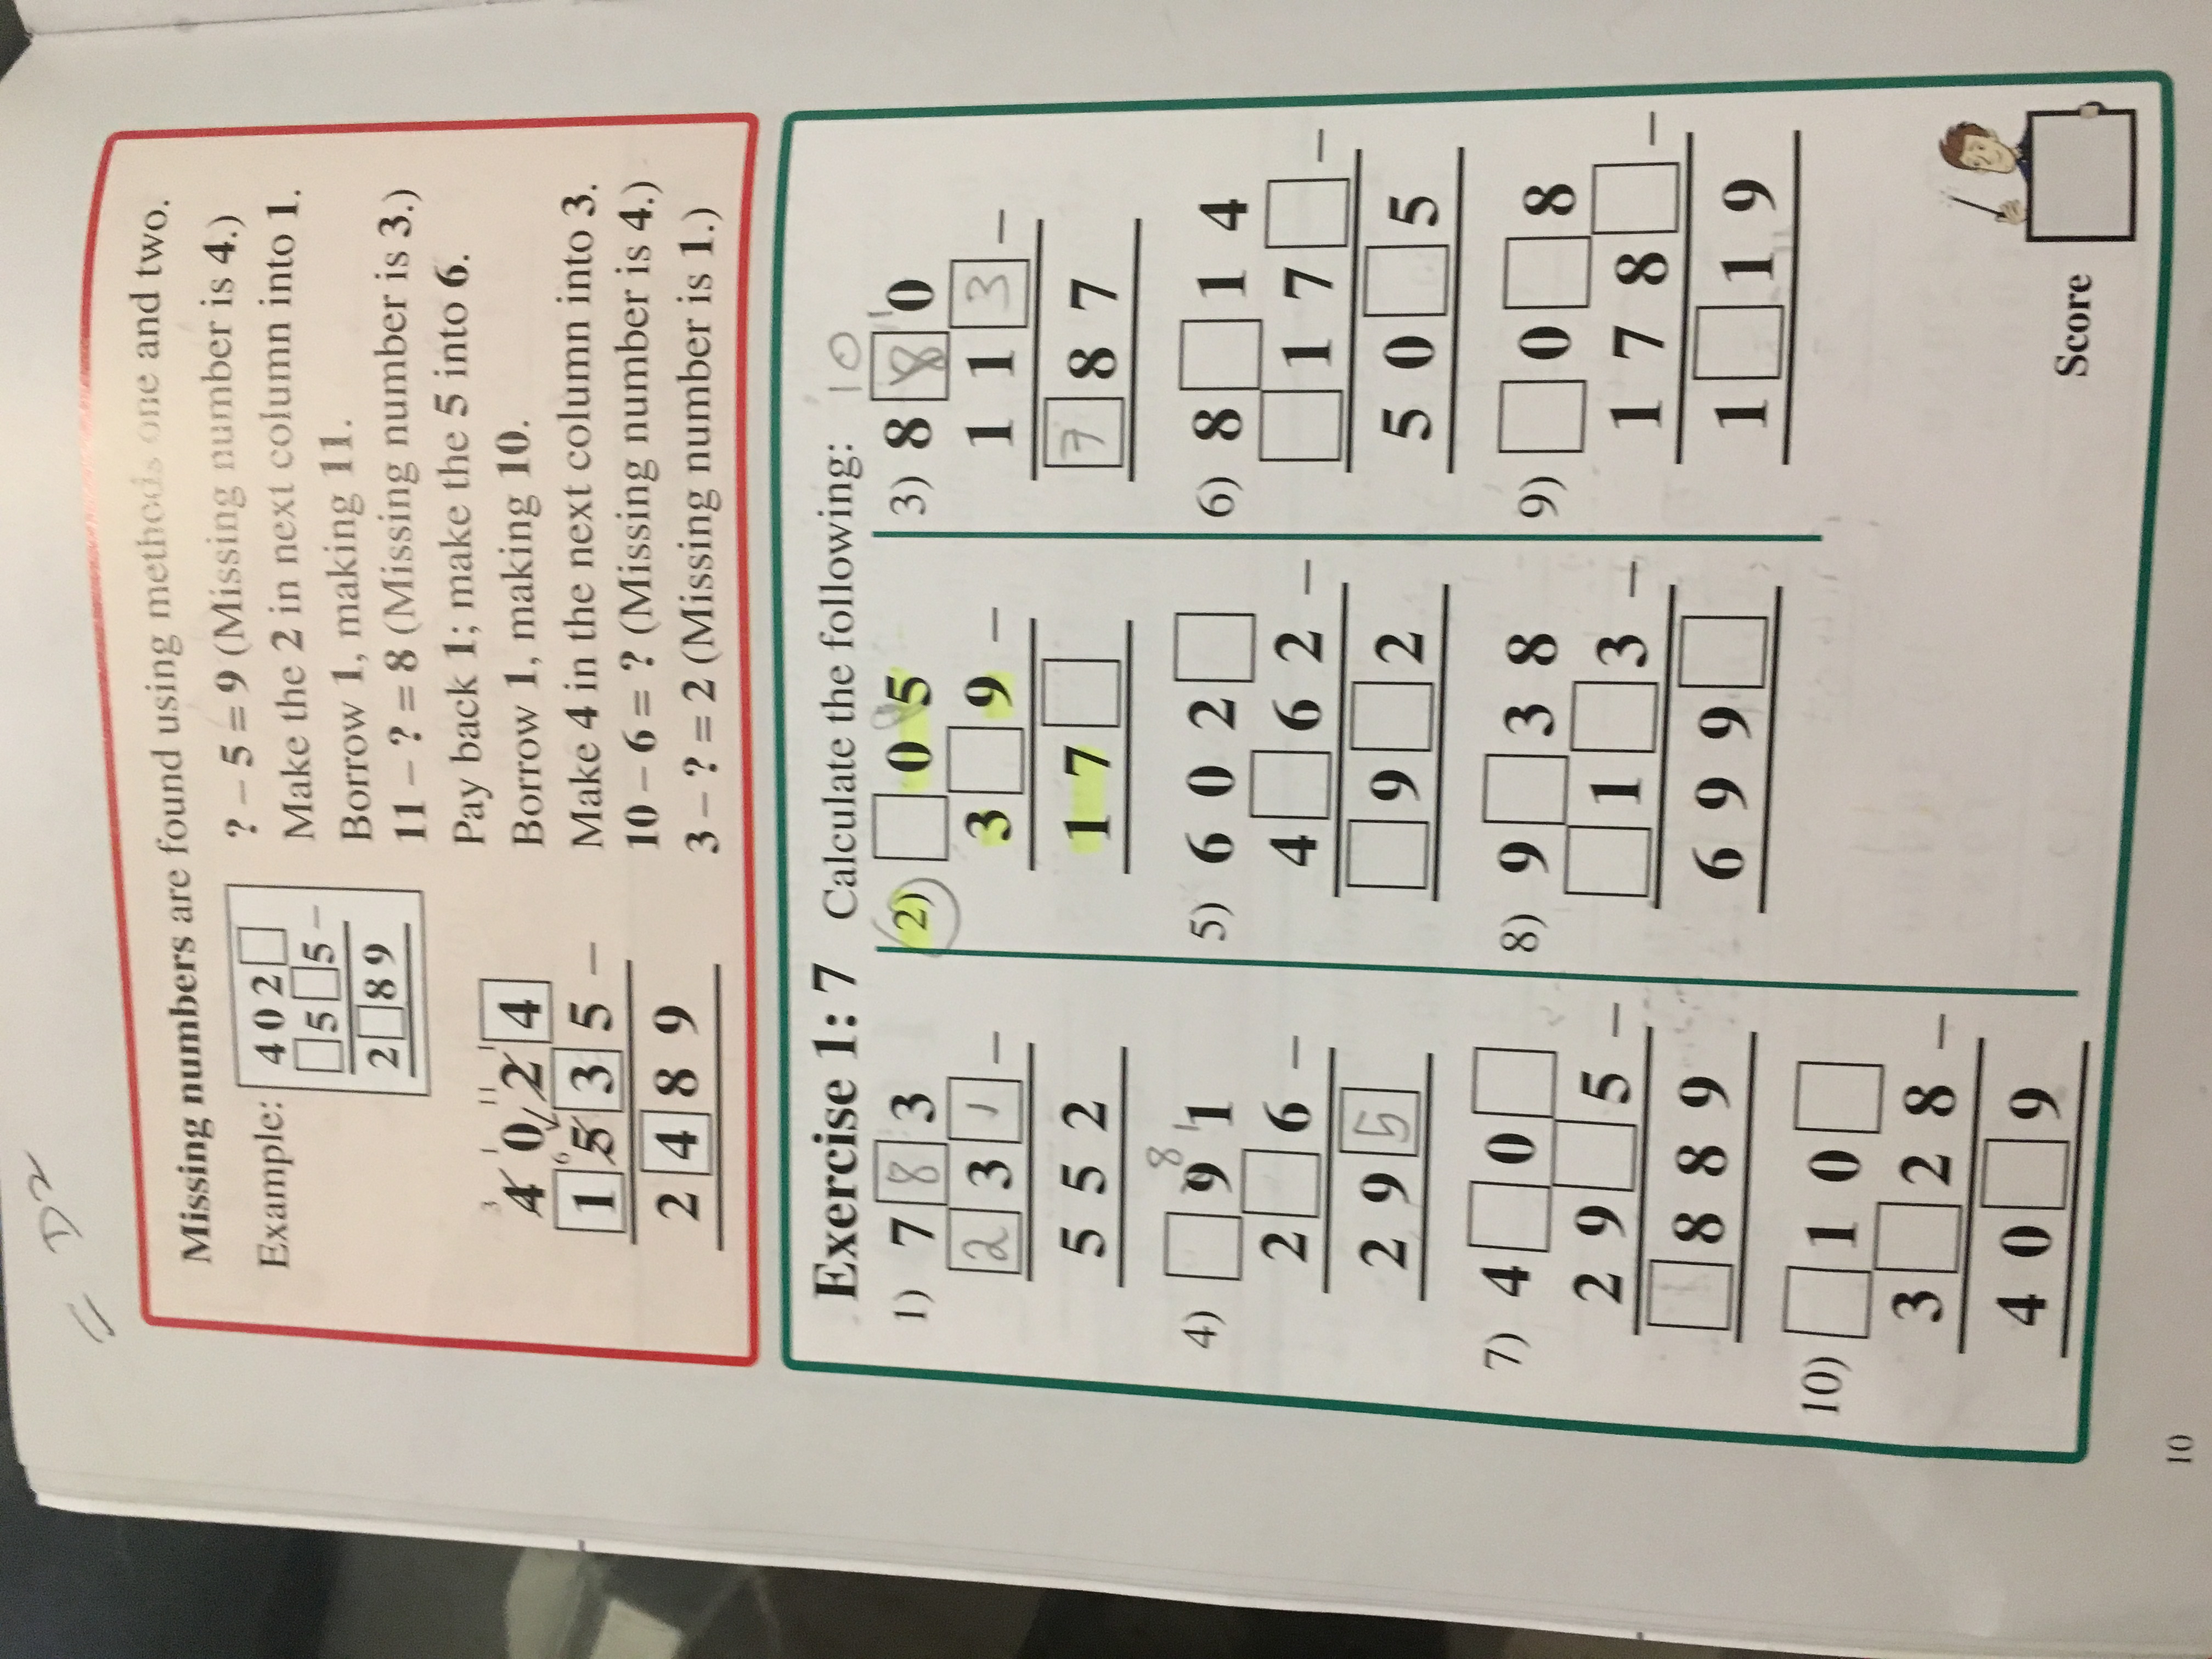 = D2
Missing numbers are found using methods one and two.
Example:
4 0 2 □
□ 5 □ 5 –
2 □ 8 9
? – 5 = 9 (Missing number is 4.)
Make the 2 in next column into 1.
Borrow 1, making 11.
11 – ? = 8 (Missing number is 3.)
Pay back 1; make the 5 into 6.
Borrow 1, making 10.
Make 4 in the next column into 3.
10 – 6 = ? (Missing number is 4.)
3 – ? = 2 (Missing number is 1.)
3 1 11 1
4 0 2 4
6
1 5 3 5 –
2 4 8 9
Exercise 1: 7 Calculate the following:
1) 7 8 3
2 3 1 –
5 5 2
2) □ 0 5
3 □ 9 –
1 7 □
10
3) 8 8 1 0
1 1 3 –
7 8 7
8
4) □ 9 1 1
2 □ 6 –
2 9 5
5) 6 0 2 □
4 □ 6 2 –
□ 9 □ 2
6) 8 □ 1 4
□ 1 7 □ –
5 0 □ 5
7) 4 □ 0 □
2 9 □ 5 –
□ 8 8 9
8) 9 □ 3 8
□ 1 □ 3 –
6 9 9 □
9) □ 0 □ 8
1 7 8 □ –
1 □ 1 9
10) □ 1 0 □
3 □ 2 8 –
4 0 □ 9
Score
10